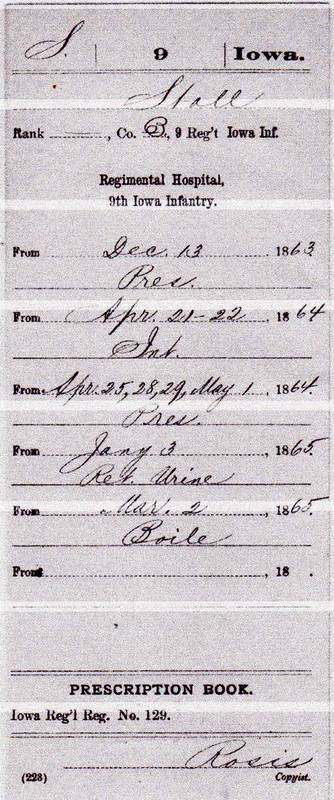 S. | 9 | Iowa.
Stoll
Rank , Co. B, 9 Reg't Iowa Inf.
Regimental Hospital,
9th Iowa Infantry.
From Dec. 13, 1863.
Pres.
From Apr. 21-22, 1864
Int.
From Apr. 25, 28, 29, May 1, 1864.
Pres.
From Jany 3, 1865.
Ret. Urine
From Mar. 2, 1865.
Boile
From , 18 .
PRESCRIPTION BOOK.
Iowa Reg'l Reg. No. 129.
Rosis
(223) Copyist.